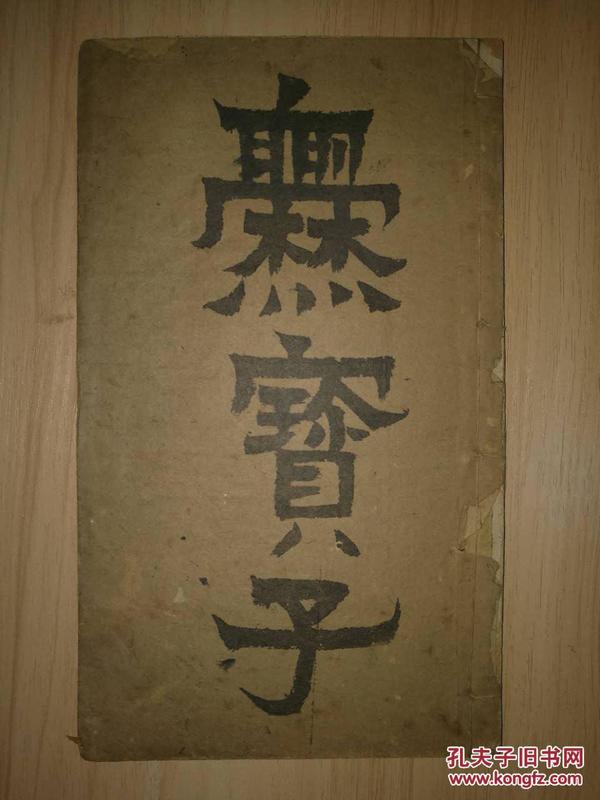 爨
寶
子
孔夫子旧书网
www.kongfz.com